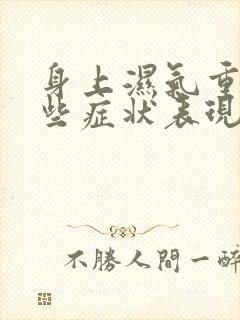 身上濕氣重
些症狀表現
不勝人間一醉